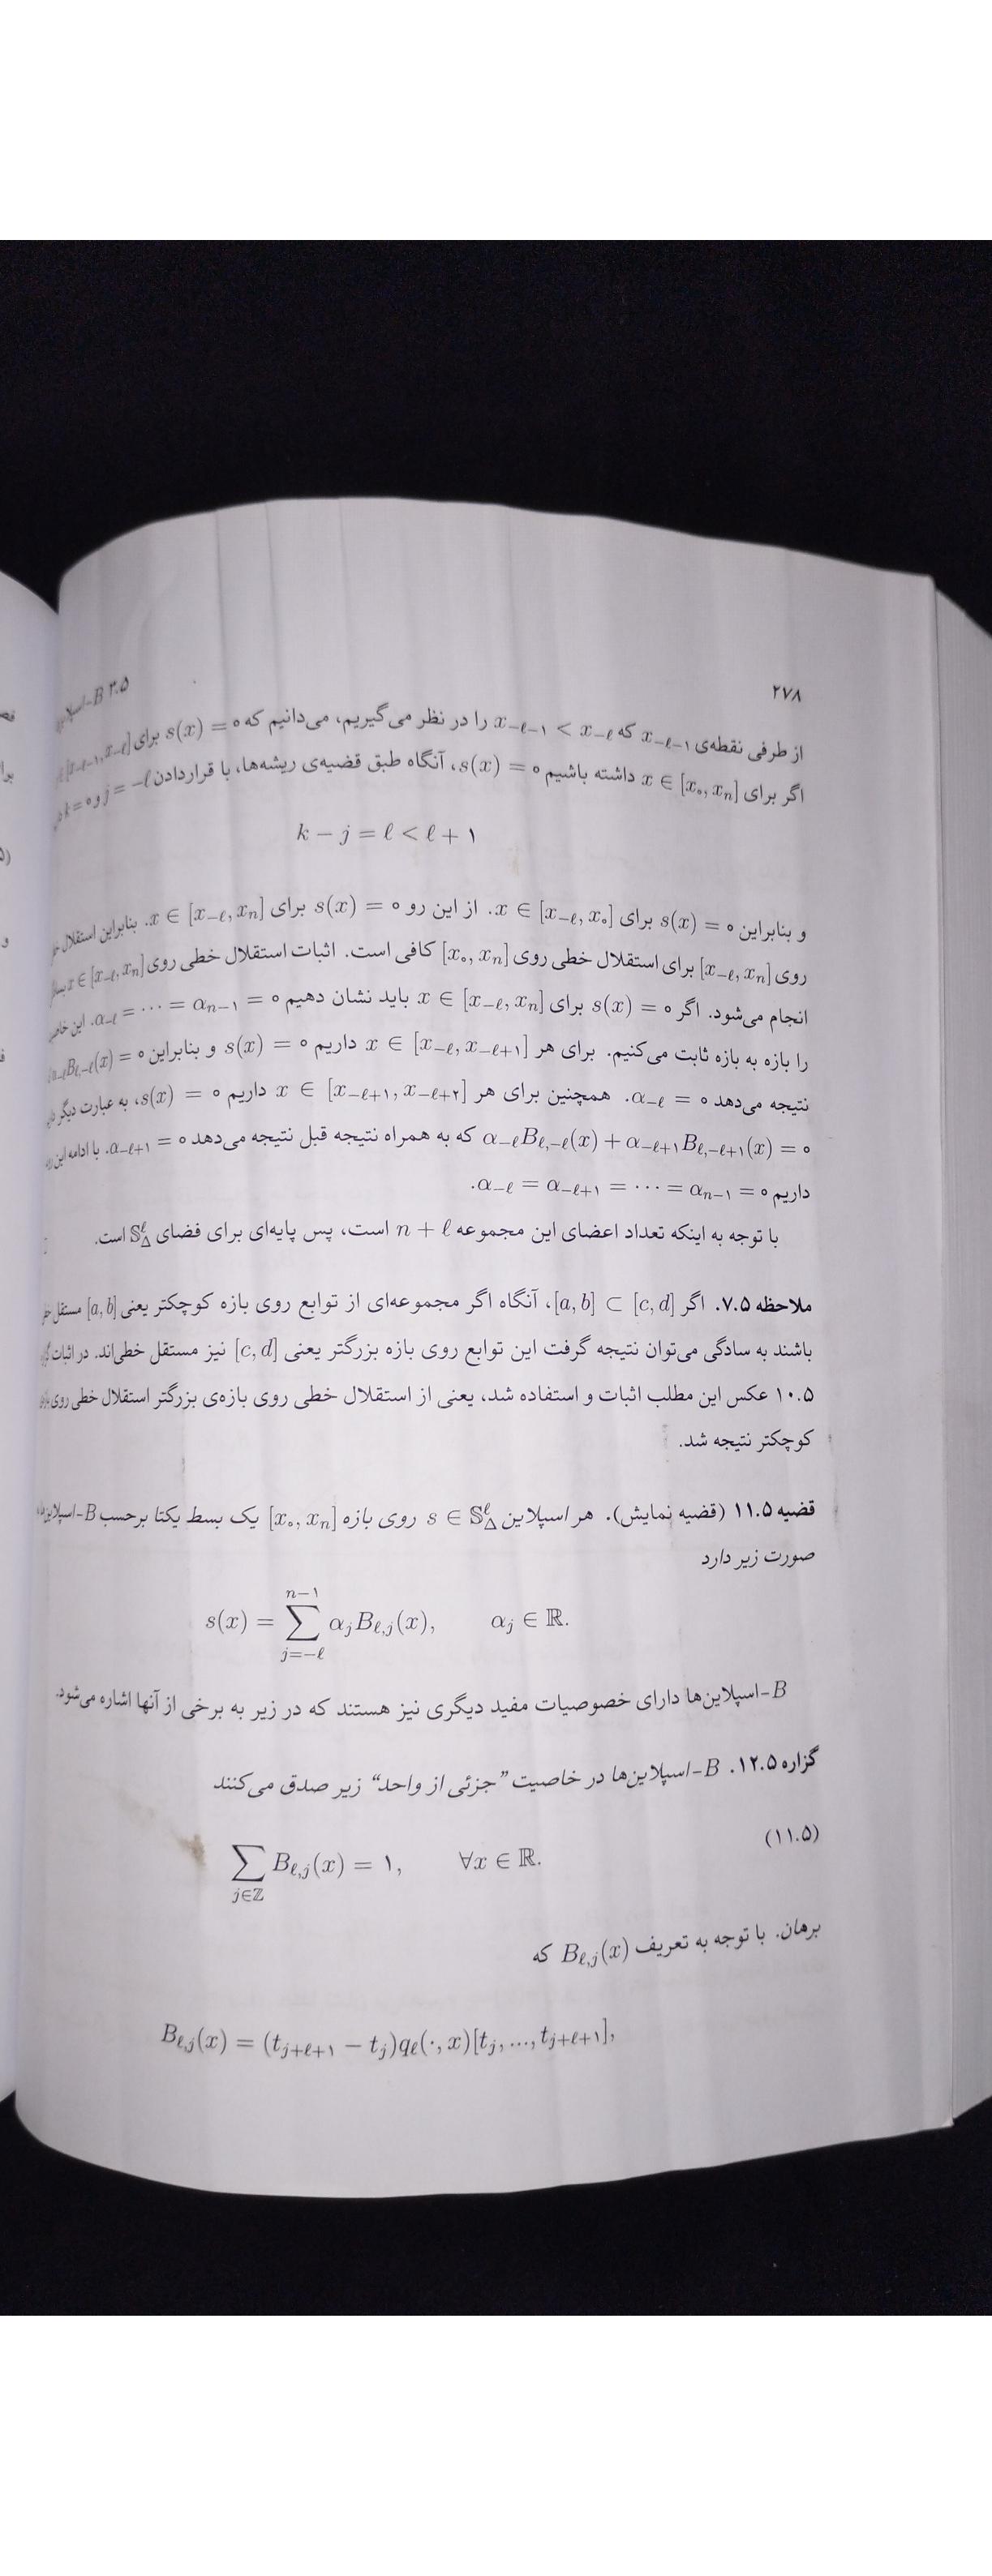 ۲۷۸
۳.۵ B-اسپلاین
از طرفی نقطه‌ی x₋ℓ₋₁ که x₋ℓ₋₁ < x₋ℓ را در نظر می‌گیریم، می‌دانیم که s(x) = ۰ برای [x₋ℓ₋₁, x₋ℓ]
اگر برای x ∈ [x₀, xₙ] داشته باشیم s(x) = ۰، آنگاه طبق قضیه‌ی ریشه‌ها، با قراردادن j = −ℓ و k = ۰
k − j = ℓ < ℓ + ۱
و بنابراین s(x) = ۰ برای x ∈ [x₋ℓ, x₀]. از این رو s(x) = ۰ برای x ∈ [x₋ℓ, xₙ]. بنابراین استقلال
روی [x₋ℓ, xₙ] برای استقلال خطی روی [x₀, xₙ] کافی است. اثبات استقلال خطی روی x ∈ [x₋ℓ, xₙ]
انجام می‌شود. اگر s(x) = ۰ برای x ∈ [x₋ℓ, xₙ] باید نشان دهیم α₋ℓ = ⋯ = αₙ₋₁ = ۰. این
را بازه به بازه ثابت می‌کنیم. برای هر x ∈ [x₋ℓ, x₋ℓ₊₁] داریم s(x) = ۰ و بنابراین α₋ℓBℓ,₋ℓ(x) = ۰
نتیجه می‌دهد α₋ℓ = ۰. همچنین برای هر x ∈ [x₋ℓ₊₁, x₋ℓ₊₂] داریم s(x) = ۰، به عبارت دیگر
α₋ℓBℓ,₋ℓ(x) + α₋ℓ₊₁Bℓ,₋ℓ₊₁(x) = ۰ که به همراه نتیجه قبل نتیجه می‌دهد α₋ℓ₊₁ = ۰. با ادامه این
داریم α₋ℓ = α₋ℓ₊₁ = ⋯ = αₙ₋₁ = ۰.
با توجه به اینکه تعداد اعضای این مجموعه n + ℓ است، پس پایه‌ای برای فضای 𝕊_Δ^ℓ است.
ملاحظه ۷.۵. اگر [a, b] ⊂ [c, d]، آنگاه اگر مجموعه‌ای از توابع روی بازه کوچکتر یعنی [a, b] مستقل
باشند به سادگی می‌توان نتیجه گرفت این توابع روی بازه بزرگتر یعنی [c, d] نیز مستقل خطی‌اند. در اثبات
۱۰.۵ عکس این مطلب اثبات و استفاده شد، یعنی از استقلال خطی روی بازه‌ی بزرگتر استقلال خطی روی
کوچکتر نتیجه شد.
قضیه ۱۱.۵ (قضیه نمایش). هر اسپلاین s ∈ 𝕊_Δ^ℓ روی بازه [x₀, xₙ] یک بسط یکتا برحسب B-اسپلاین‌ها
صورت زیر دارد
s(x) = ∑_{j=−ℓ}^{n−۱} αⱼBℓ,ⱼ(x), αⱼ ∈ ℝ.
B-اسپلاین‌ها دارای خصوصیات مفید دیگری نیز هستند که در زیر به برخی از آنها اشاره می‌شود.
گزاره ۱۲.۵. B-اسپلاین‌ها در خاصیت "جزئی از واحد" زیر صدق می‌کنند
(۱۱.۵) ∑_{j∈ℤ} Bℓ,ⱼ(x) = ۱, ∀x ∈ ℝ.
برهان. با توجه به تعریف Bℓ,ⱼ(x) که
Bℓ,ⱼ(x) = (t_{j+ℓ+۱} − tⱼ)qℓ(·, x)[tⱼ, ..., t_{j+ℓ+۱}],